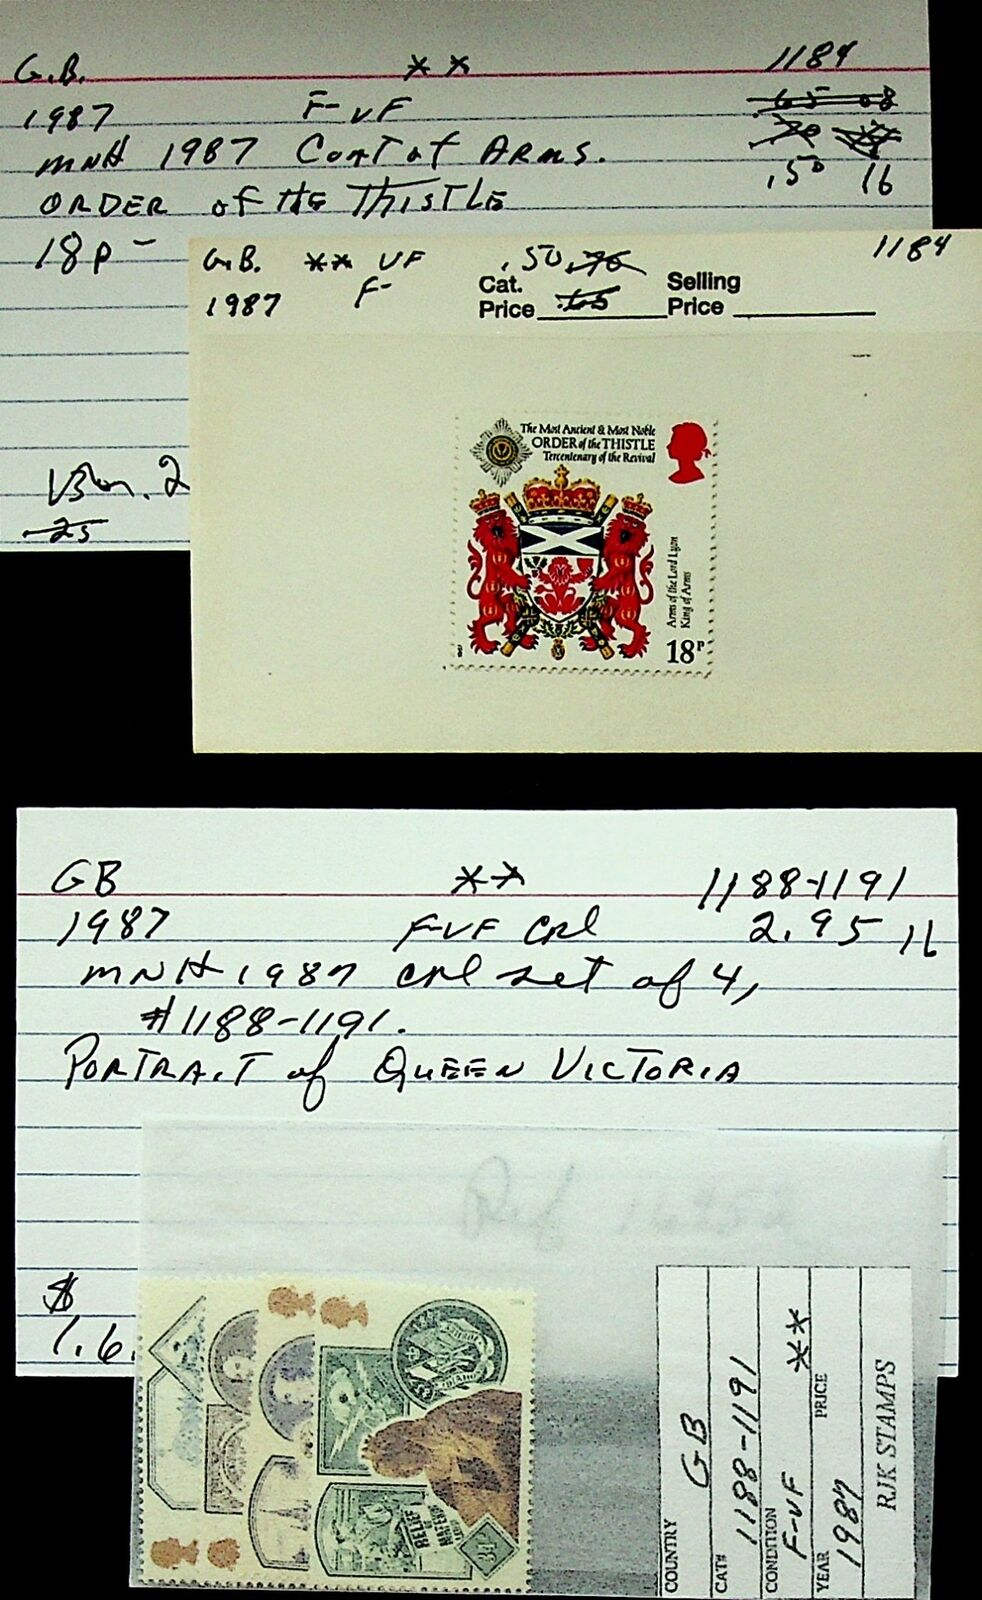 G.B. ** 1184
1987 F-VF .65 08
MNH 1987 Coat of Arms. .70
ORDER of the THISTLE .50 16
18p -
25
G.B. ** VF .50 .70 1184
1987 F-
Cat. Price .65 Selling Price
The Most Ancient & Most Noble
ORDER of the THISTLE
Tercentenary of the Revival
Arms of the Lord Lyon
King of Arms
18P
GB ** 1188-1191
1987 F-VF CPL 2.95 16
MNH 1987 CPL set of 4,
#1188-1191.
PORTRAIT of QUEEN VICTORIA
$
1.6
Ref
RELIEF OF MAFEKING
34
COUNTRY GB
CAT# 1188-1191
CONDITION F-VF **
YEAR 1987 PRICE
RJK STAMPS